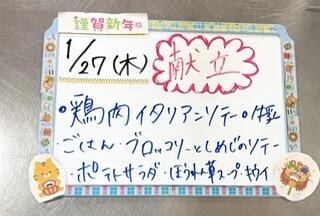 謹賀新年
1/27(木)
献立
鶏肉イタリアンソテー
・ごはん・ブロッコリーとしめじのソテー
・ポテトサラダ・ほうれん草スープ・キウイ